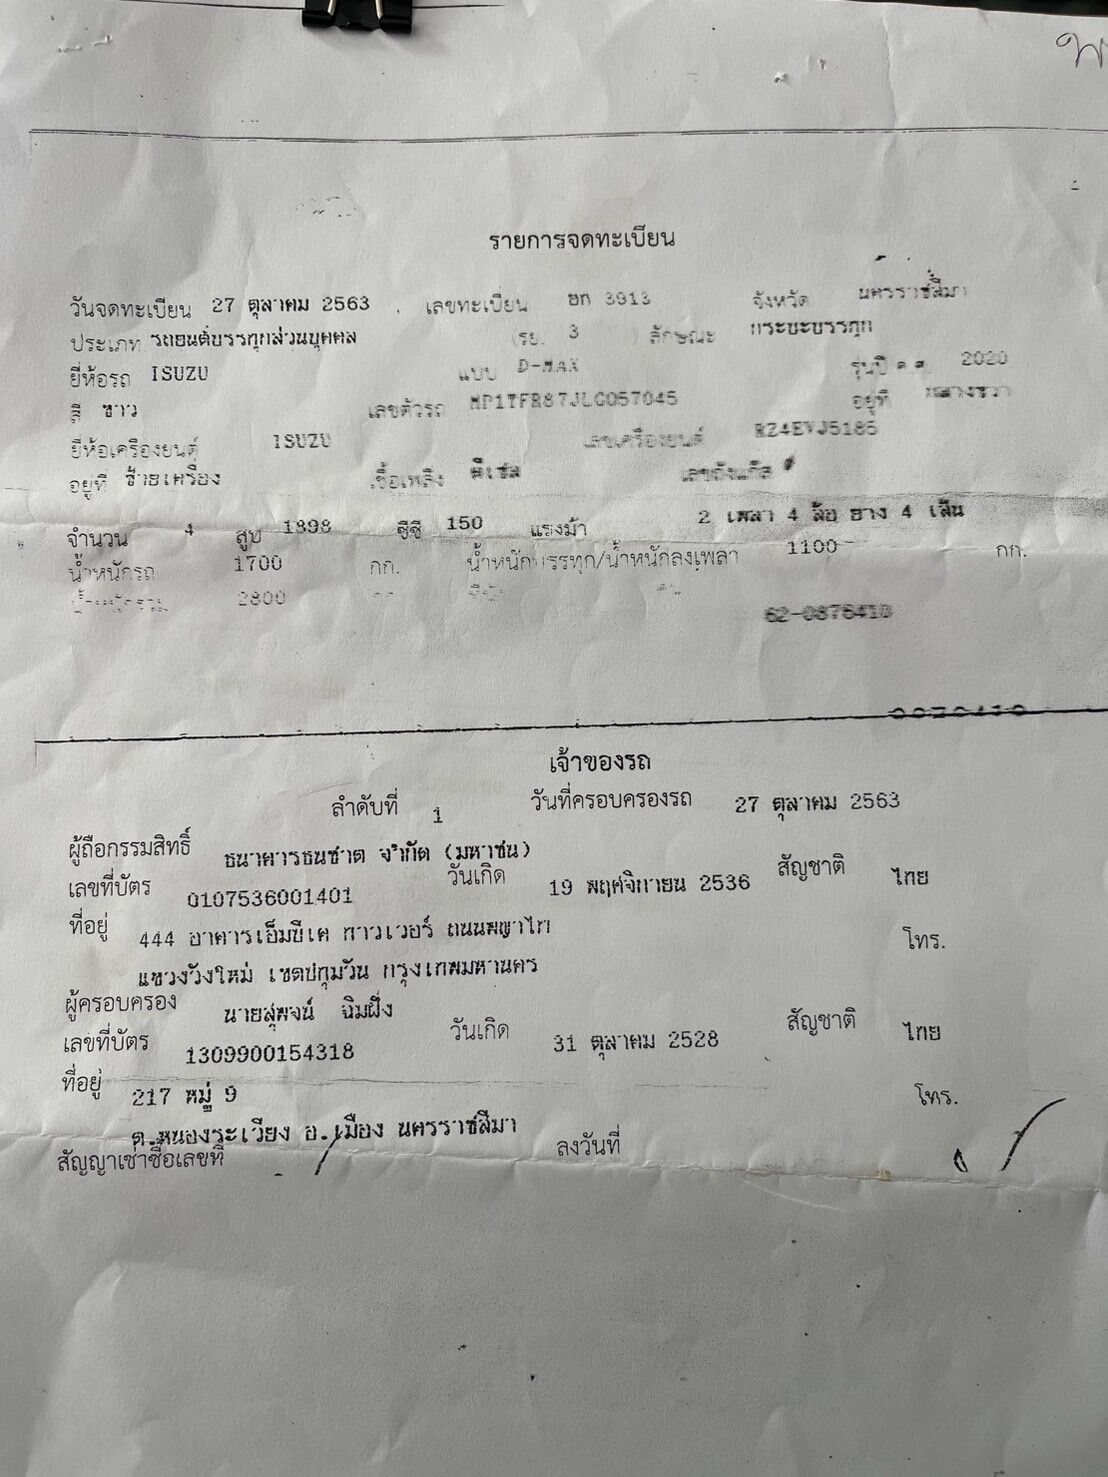 พ
รายการจดทะเบียน
วันจดทะเบียน 27 ตุลาคม 2563 เลขทะเบียน ยก 3913 จังหวัด นครราชสีมา
ประเภท รถยนต์บรรทุกส่วนบุคคล (รย. 3 ) ลักษณะ กระบะบรรทุก
ยี่ห้อรถ ISUZU แบบ D-MAX รุ่นปี ค.ศ. 2020
สี ขาว เลขตัวรถ MP1TFR87JLG057045 อยู่ที่
ยี่ห้อเครื่องยนต์ ISUZU เลขเครื่องยนต์ RZ4EVJ5185
อยู่ที่ ซ้ายเครื่อง เชื้อเพลิง ดีเซล เลขถังแก๊ส
จำนวน 4 สูบ 1898 ซีซี 150 แรงม้า 2 เพลา 4 ล้อ ยาง 4 เส้น
น้ำหนักรถ 1700 กก. น้ำหนักบรรทุก/น้ำหนักลงเพลา 1100 กก.
น้ำหนักรวม 2800 กก.
62-0876410
เจ้าของรถ
ลำดับที่ 1 วันที่ครอบครองรถ 27 ตุลาคม 2563
ผู้ถือกรรมสิทธิ์ ธนาคารธนชาต จำกัด (มหาชน)
เลขที่บัตร 0107536001401 วันเกิด 19 พฤศจิกายน 2536 สัญชาติ ไทย
ที่อยู่ 444 อาคารเอ็มบีเค ทาวเวอร์ ถนนพญาไท โทร.
แขวงวังใหม่ เขตปทุมวัน กรุงเทพมหานคร
ผู้ครอบครอง นายสุพจน์ ฉิมฝั่ง
เลขที่บัตร 1309900154318 วันเกิด 31 ตุลาคม 2528 สัญชาติ ไทย
ที่อยู่ 217 หมู่ 9 โทร.
ต.หนองระเวียง อ.เมือง นครราชสีมา
สัญญาเช่าซื้อเลขที่ ลงวันที่